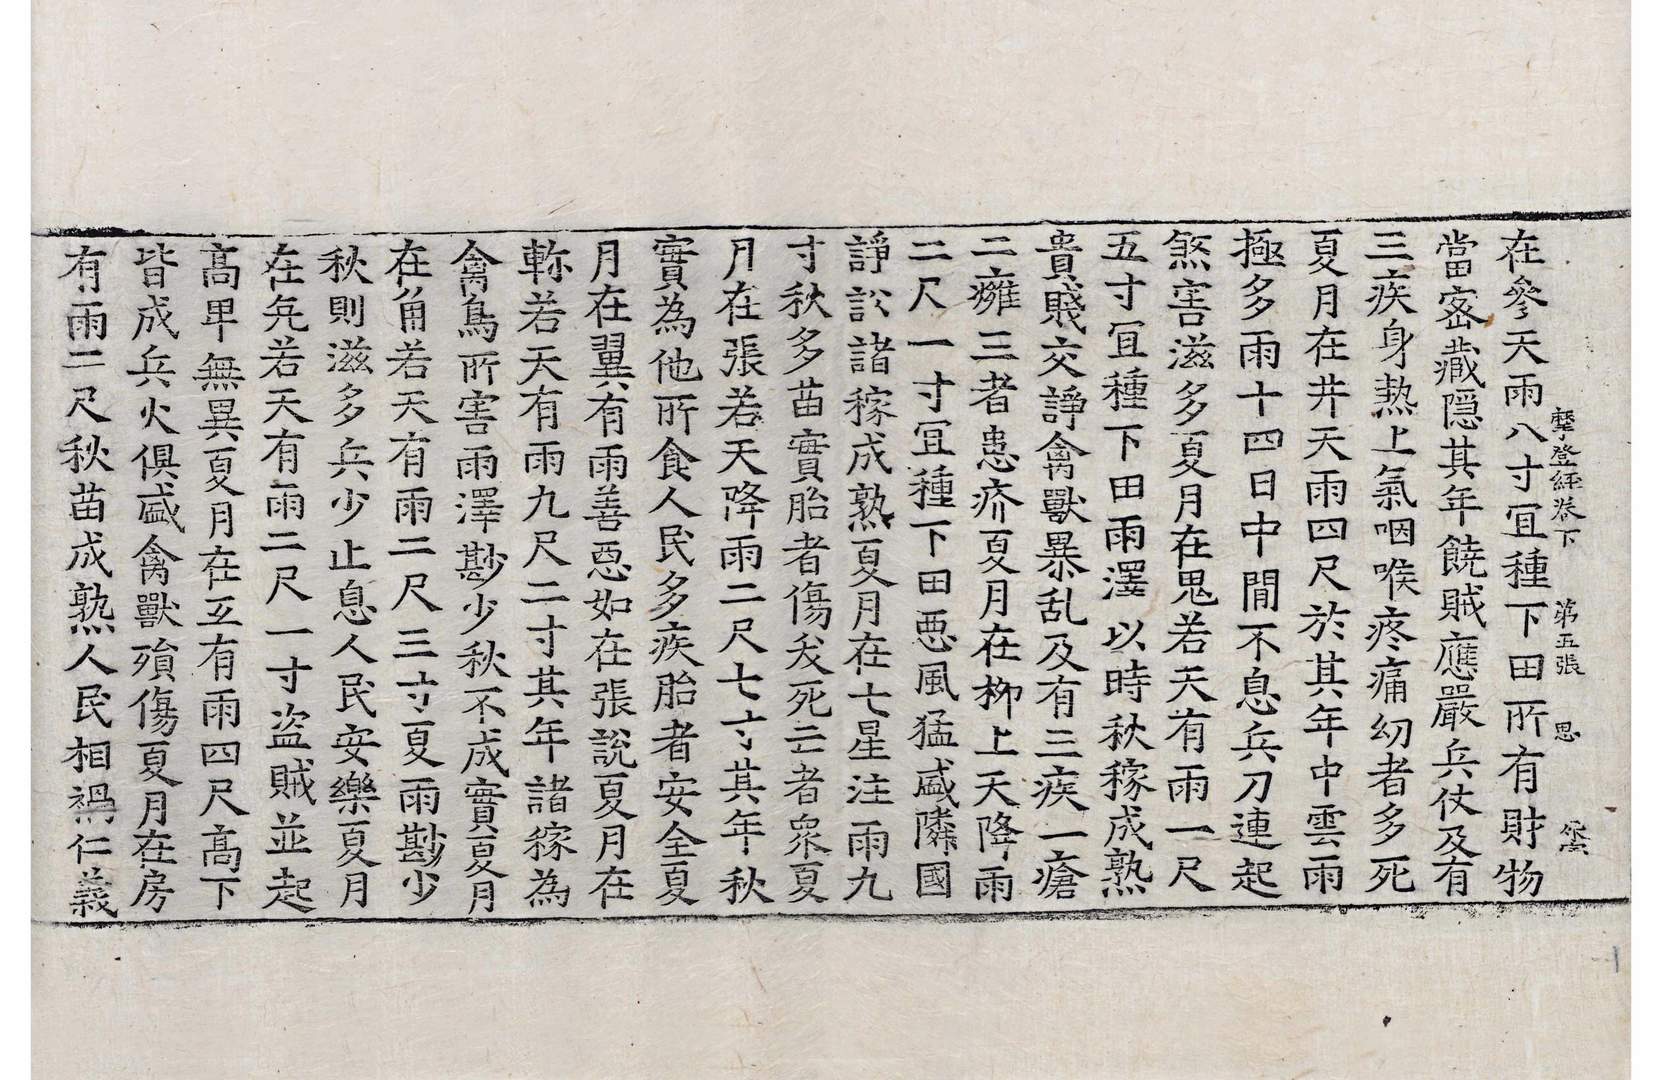 摩登經卷下　第五張　思
在參天雨八寸冝種下田所有財物
當密藏隠其年饒賊應嚴兵仗及有
三疾身熱上氣咽喉疼痛幼者多死
夏月在井天雨四尺於其年中雲雨
極多雨十四日中間不息兵刀連起
煞害滋多夏月在思若天有雨一尺
五寸冝種下田雨澤以時秋稼成熟
貴賤交諍禽獸暴乱及有三疾一瘡
二癰三者患疥夏月在柳上天降雨
二尺一寸冝種下田悪風猛盛隣國
諍訟諸稼成熟夏月在七星注雨九
寸秋多苗實胎者傷夭死亡者衆夏
月在張若天降雨二尺七寸其年秋
實為他所食人民多疾胎者安全夏
月在翼有雨善悪如在張說夏月在
軫若天有雨九尺二寸其年諸稼為
禽鳥所害雨澤尠少秋不成實夏月
在角若天有雨二尺三寸夏雨尠少
秋則滋多兵少止息人民安樂夏月
在亢若天有雨二尺一寸盗賊並起
高卑無異夏月在互有雨四尺高下
皆成兵火俱盛禽獸殞傷夏月在房
有雨二尺秋苗成熟人民相禍仁義